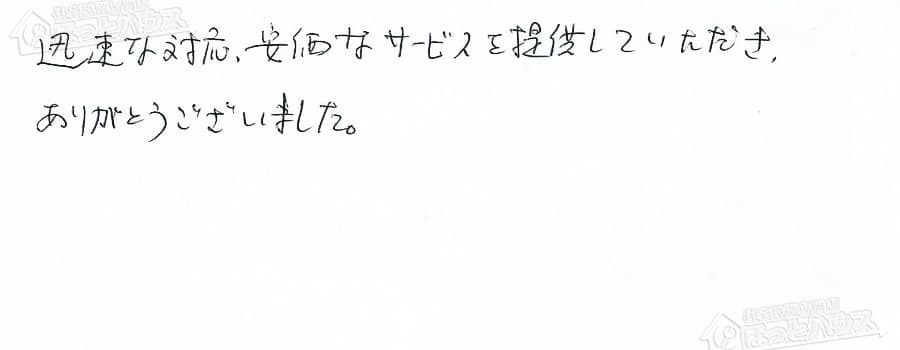 迅速な対応、安価なサービスを提供していただき、
ありがとうございました。
ほっとハウス